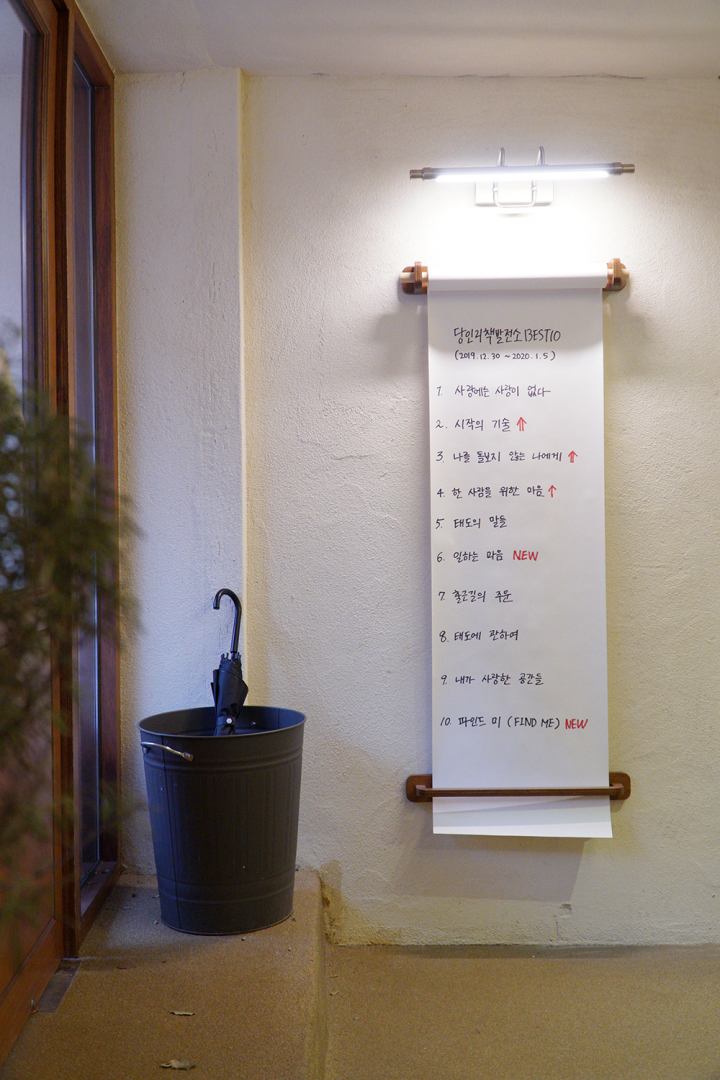 당인리책발전소 BEST10
(2019.12.30 ~ 2020.1.5)
1. 사랑에는 사랑이 없다
2. 시작의 기술 ↑
3. 나를 돌보지 않는 나에게 ↑
4. 한 사람을 위한 마음 ↑
5. 태도의 말들
6. 일하는 마음 NEW
7. 출근길의 주문
8. 태도에 관하여
9. 내가 사랑한 공간들
10. 파인드 미 (FIND ME) NEW